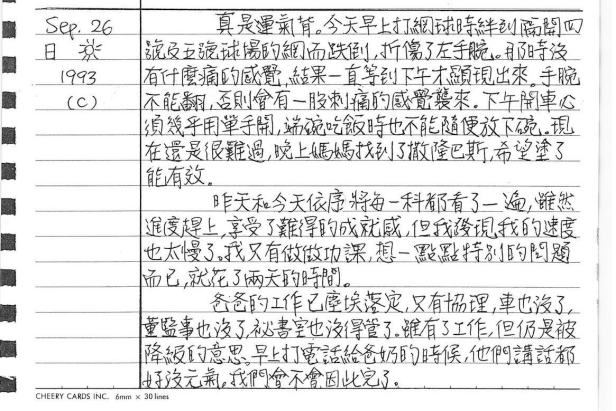 Sep. 26
日
1993
(C)
真是運氣背。今天早上打網球時絆到隔開四
號及五號球場的網而跌倒，折傷了左手腕。那時沒
有什麼痛的感覺，結果一直等到下午才顯現出來。手腕
不能翻，否則會有一股刺痛的感覺襲來。下午開車必
須幾乎用單手開，端碗吃飯時也不能隨便放下碗。現
在還是很難過，晚上媽媽找到了撒隆巴斯，希望塗了
能有效。
昨天和今天依序將每一科都看了一遍，雖然
進度趕上，享受了難得的成就感，但我發現我的速度
也太慢了。我只有做做功課，想一點點特別的問題
而已，就花了兩天的時間。
爸爸的工作已塵埃落定，只有協理，車也沒了，
董監事也沒了，祕書室也沒得管了。雖有了工作，但仍是被
降級的意思。早上打電話給爸奶的時候，他們講話都
好沒元氣。我們會不會因此完了。
CHEERY CARDS INC. 6mm × 30 lines